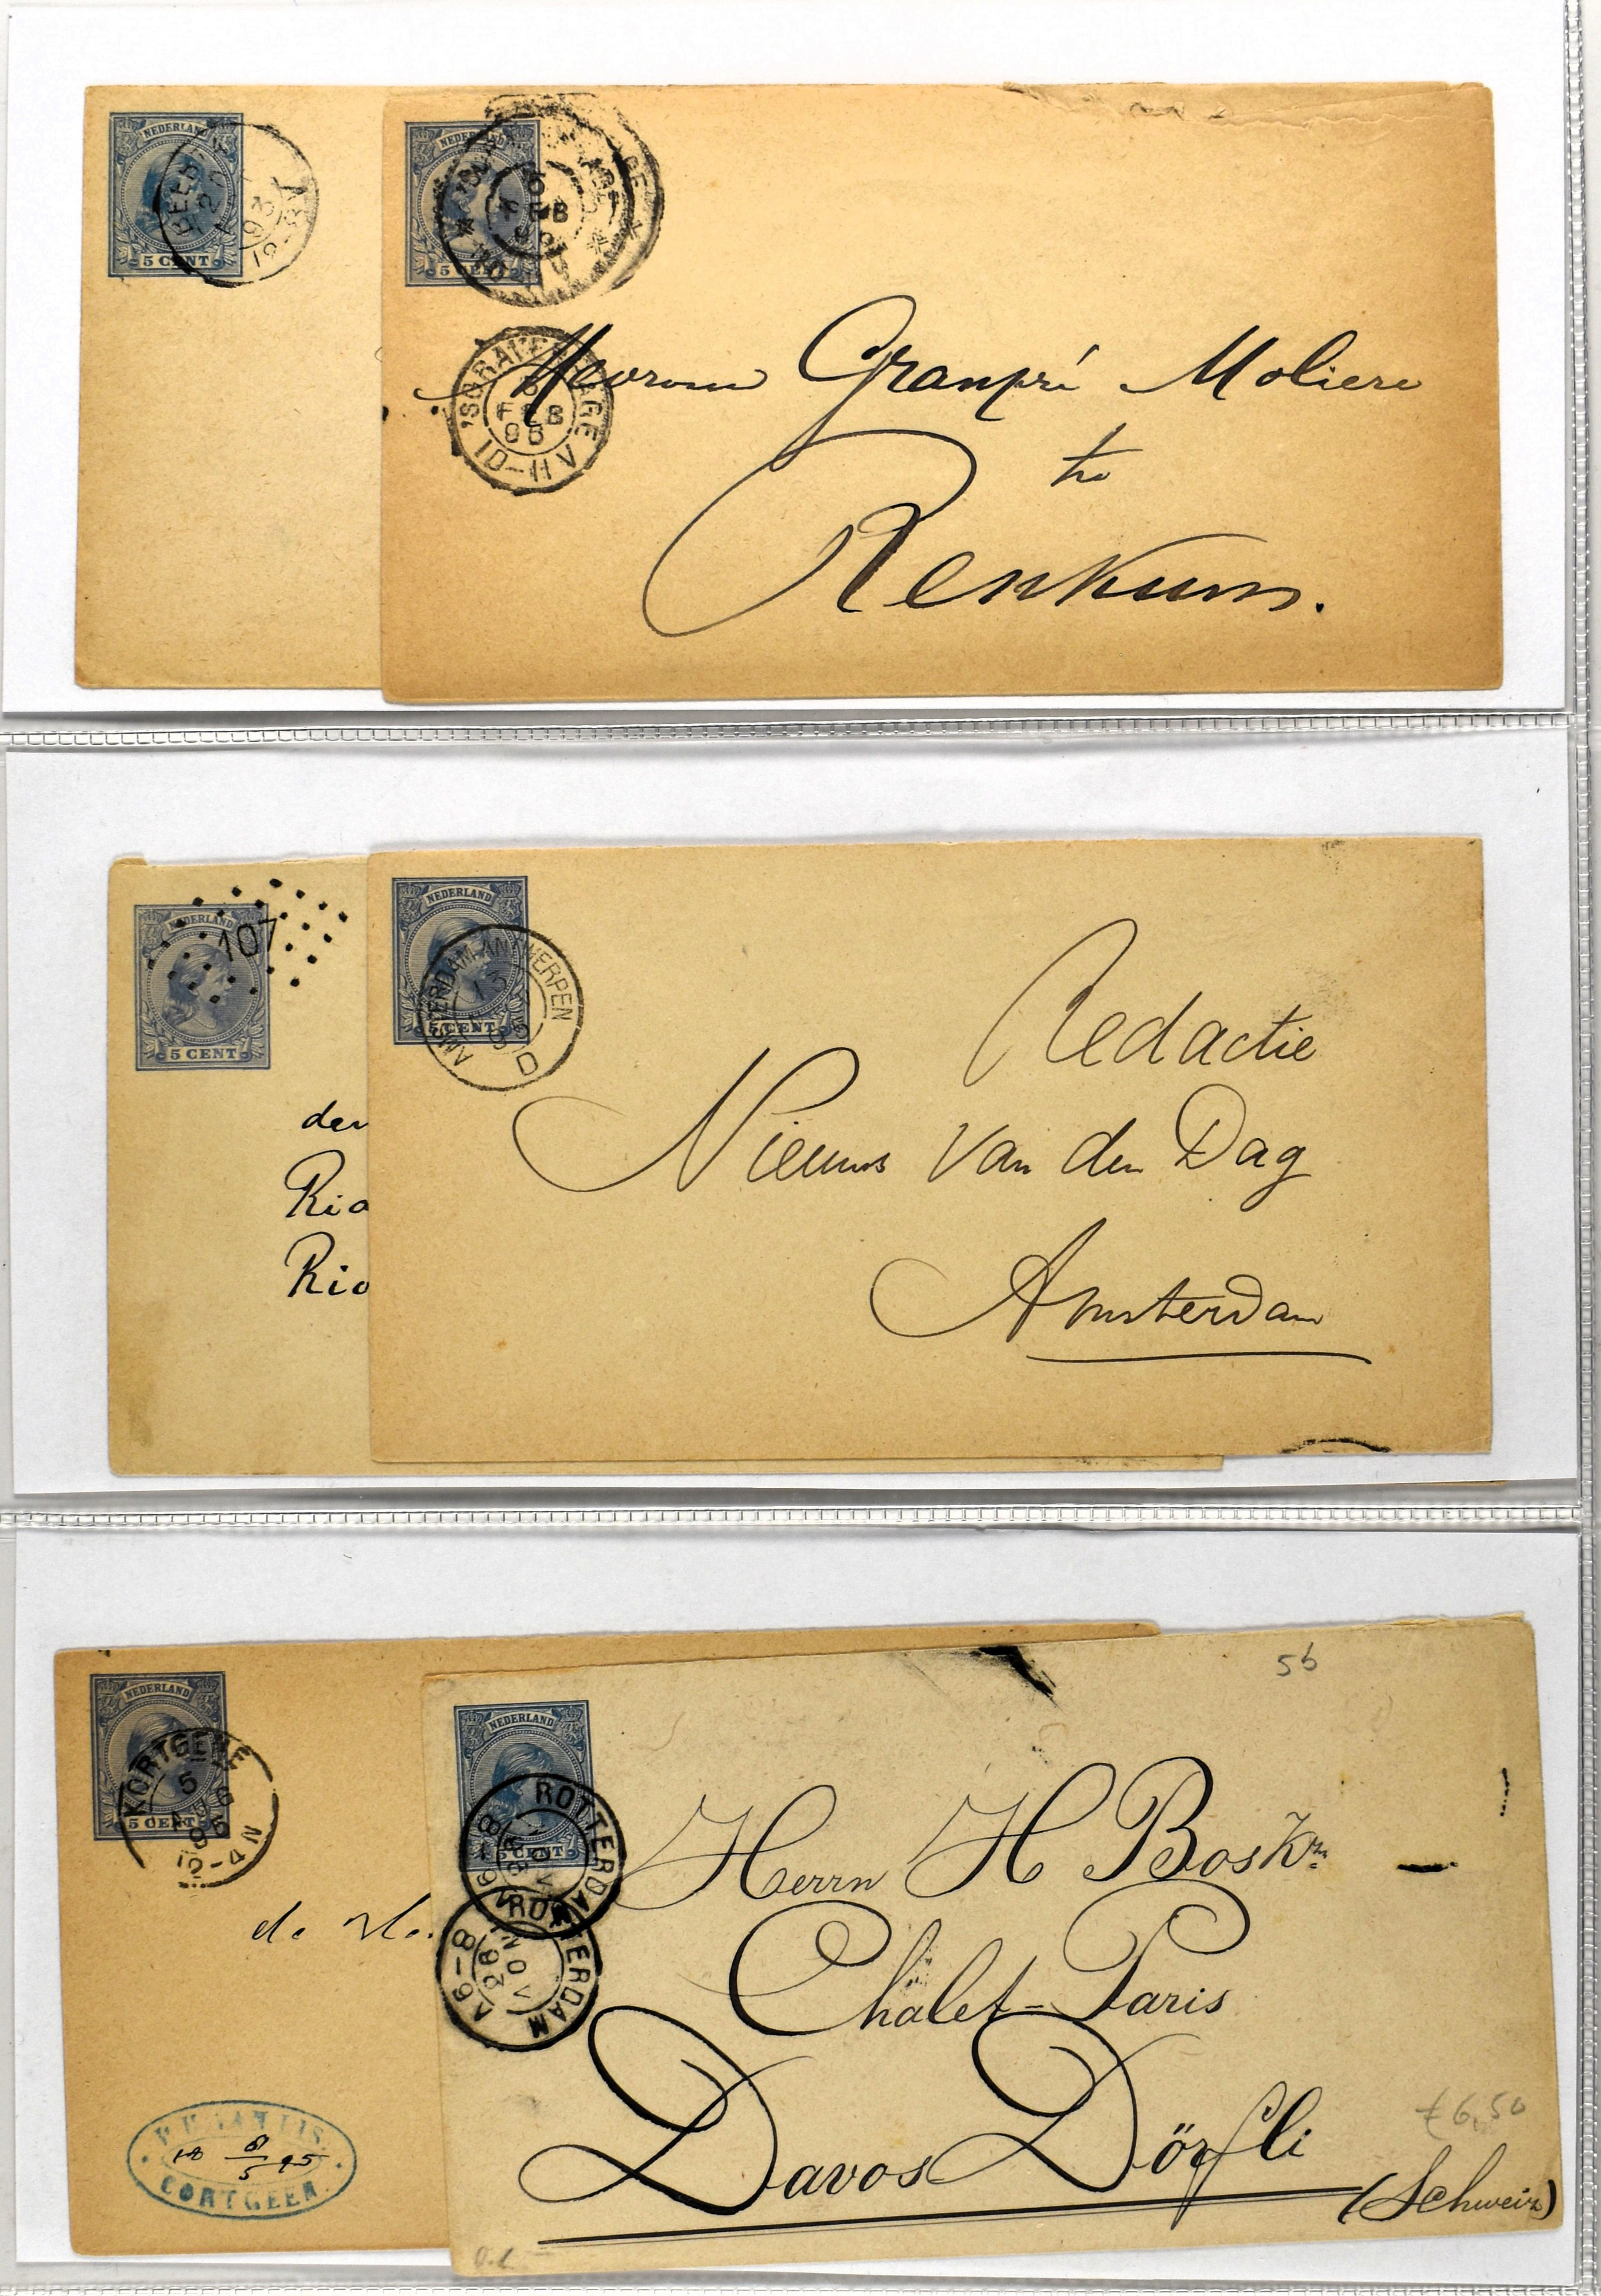 NEDERLAND
5 CENT
93
NEDERLAND
5 CENT
'SGRAVENHAGE
FEB
95
10-11 V
Mevrouw Granpré Moliere
te
Renkum.
NEDERLAND
107
5 CENT
der
Rio
Rio
NEDERLAND
5 CENT
AMSTERDAM-ANTWERPEN
13
D
Redactie
Nieuws van den Dag
Amsterdam
NEDERLAND
5 CENT
KORTGENE
5
AUG
95
de
CORTGEEN.
18 6/5 95
NEDERLAND
5 CENT
ROTTERDAM
6-8
ROTTERDAM
26
NOV
6-8
56
Herrn H Bos Kzn
Châlet-Paris
Davos Dörfli
(Schweiz)
€6,50